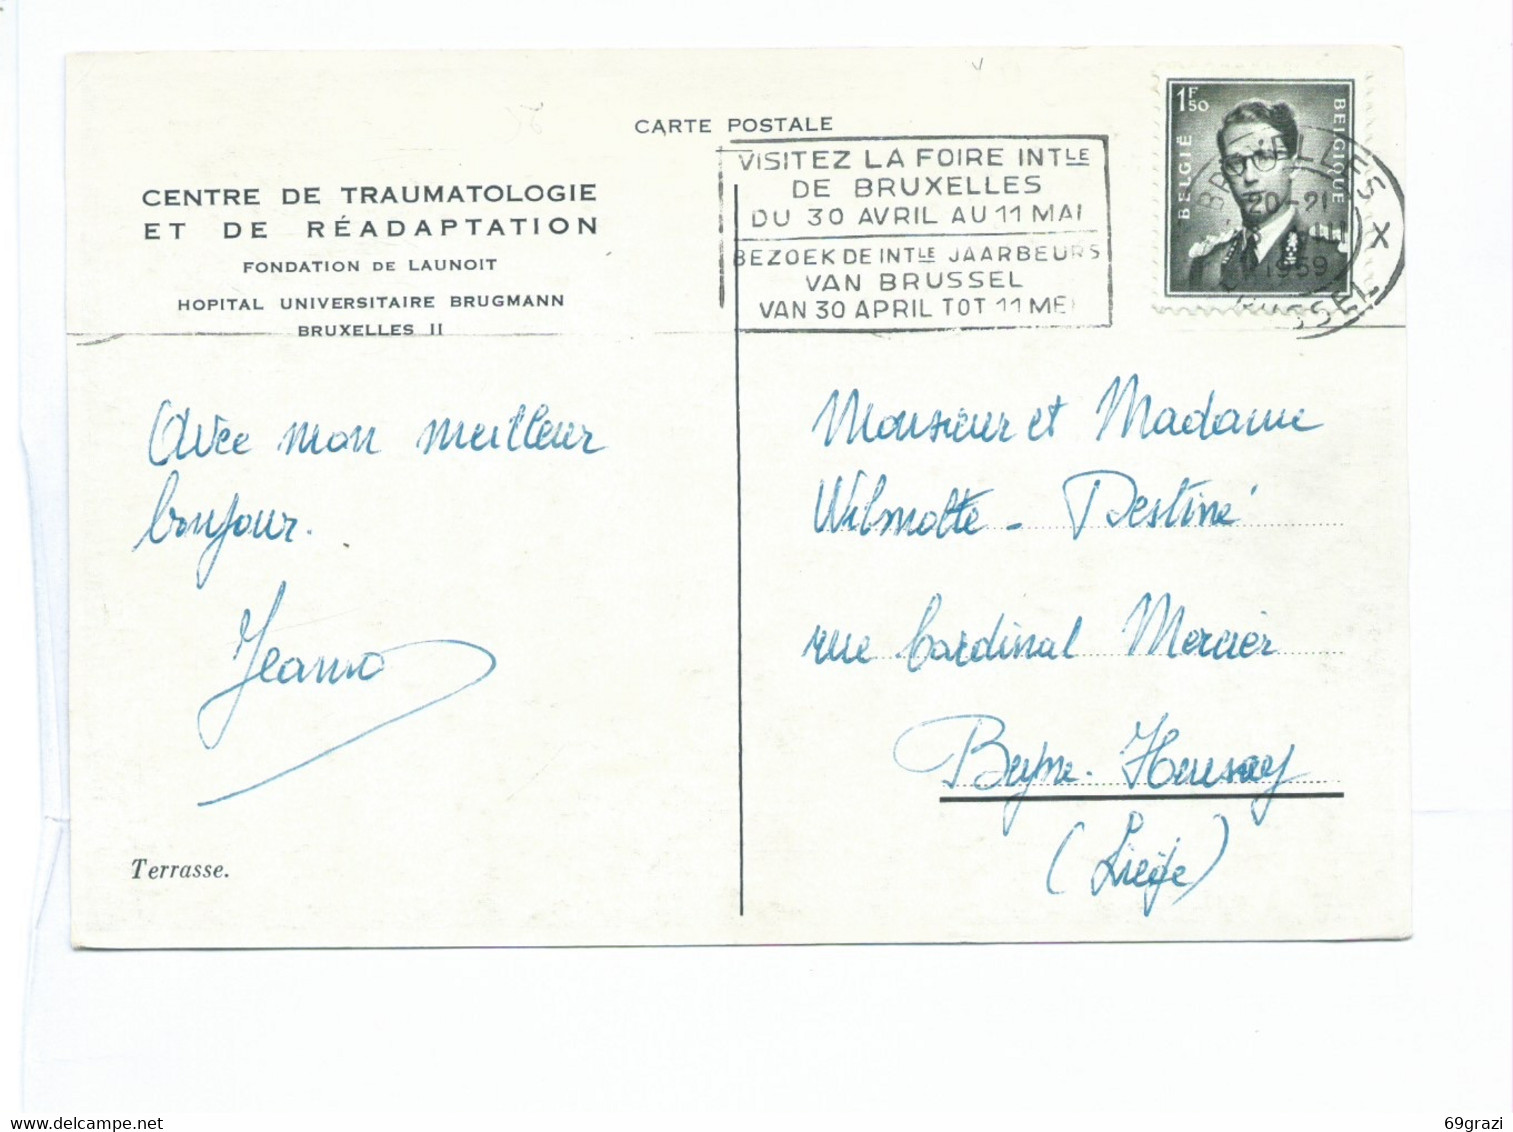 CARTE POSTALE
CENTRE DE TRAUMATOLOGIE
ET DE RÉADAPTATION
FONDATION DE LAUNOIT
HOPITAL UNIVERSITAIRE BRUGMANN
BRUXELLES II
VISITEZ LA FOIRE INTLE
DE BRUXELLES
DU 30 AVRIL AU 11 MAI
BEZOEK DE INTLE JAARBEURS
VAN BRUSSEL
VAN 30 APRIL TOT 11 MEI
1F50
BELGIË
BELGIQUE
BRUXELLES X
20-21
1959
BRUSSEL
Avec mon meilleur
bonjour.
Terrasse.
Monsieur et Madame
Wilmotte - Destiné
rue Cardinal Mercier
Beyne-Heusay
(Liège)
69grazi